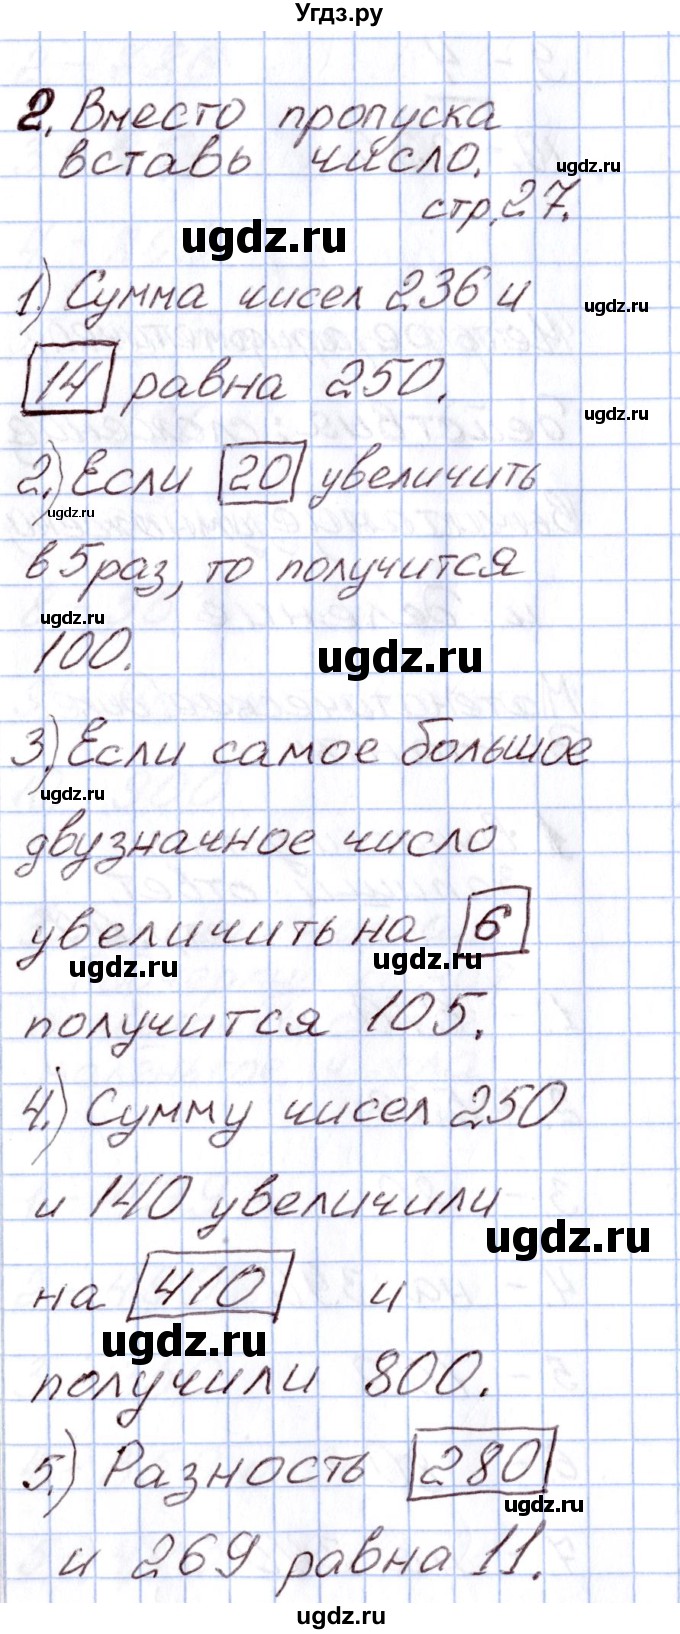 Угдз.ру
2. Вместо пропуска
вставь число.
ugdz.ru
стр. 27.
ugdz.ru
1.) Сумма чисел 236 и
ugdz.ru
14 равна 250.
ugdz.ru
2.) Если 20 увеличить
ugdz.ru
в 5 раз, то получится
ugdz.ru
100.
ugdz.ru
3.) Если самое большое
ugdz.ru
двузначное число
увеличить на 6
ugdz.ru ugdz.ru
получится 105.
4.) Сумму чисел 250
и 140 увеличили
ugdz.ru
на 410 и
ugdz.ru
получили 800.
5.) Разность 280
ugdz.ru
и 269 равна 11.
ugdz.ru